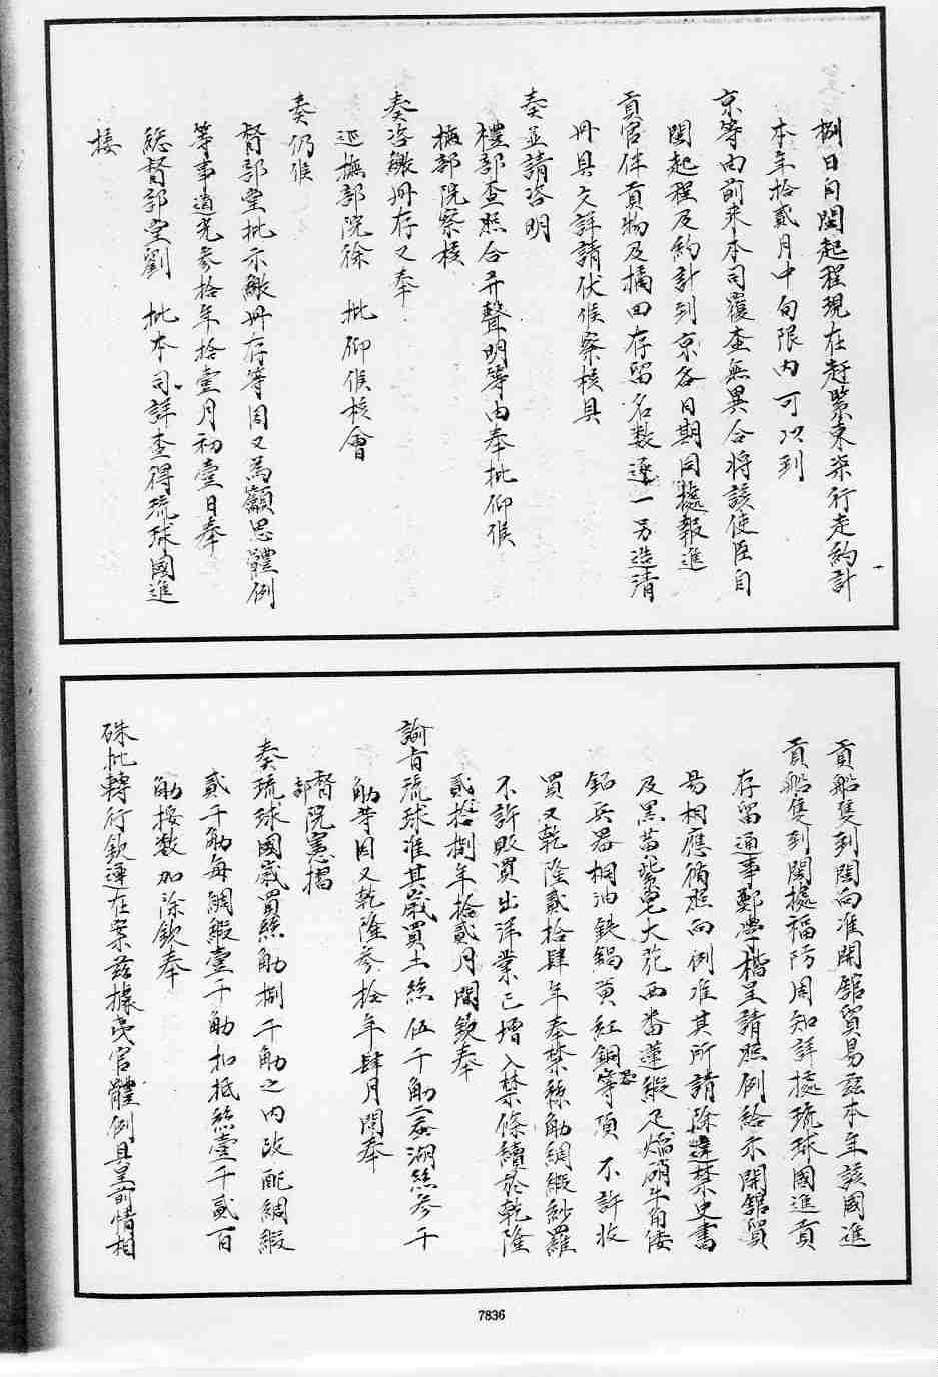 捌日自閩起程現在赶緊束裝行走約計
本年拾貳月中旬限内可以到
京等由前來本司覆查無異合將該使臣自
閩起程及約計到京各日期同據報進
貢官伴貢物及摘回存留名數逐一另造清
册具文詳請伏候察核具
奏並請咨明
禮部查照合并聲明等由奉批仰候
撫部院察核
奏咨繳册存又奉
巡撫部院徐 批仰候核會
奏仍候
督部堂批示繳册存等因又為籲恩體例
等事道光叁拾年拾壹月初壹日奉
總督部堂劉 批本司詳查得琉球國進
接
貢船隻到閩向准開舘貿易茲本年該國進
貢船隻到閩據福防同知詳據琉球國進貢
存留通事鄭學楷呈請照例給示開舘貿
易相應循照向例准其所請除違禁史書
及黑黃紫皂大花西番蓮緞疋焔硝牛角倭
鉛兵器桐油鉄鍋黄紅銅器等項 不許收
買又乾隆貳拾肆年奉禁絲觔綢緞紗羅
不許販買出洋業已增入禁條續於乾隆
貳拾捌年拾貳月間欽奉
諭旨琉球准其歲買土絲伍千觔二蚕湖絲参千
觔等因又乾隆参拾年肆月間奉
督部院憲攜
奏琉球國歲買絲觔捌千觔之内改配綢緞
貳千觔每綢緞壹千觔扣抵絲壹千貳百
觔按數加除欽奉
硃批轉行欽遵在案茲據夷官體例具呈前情相
7836